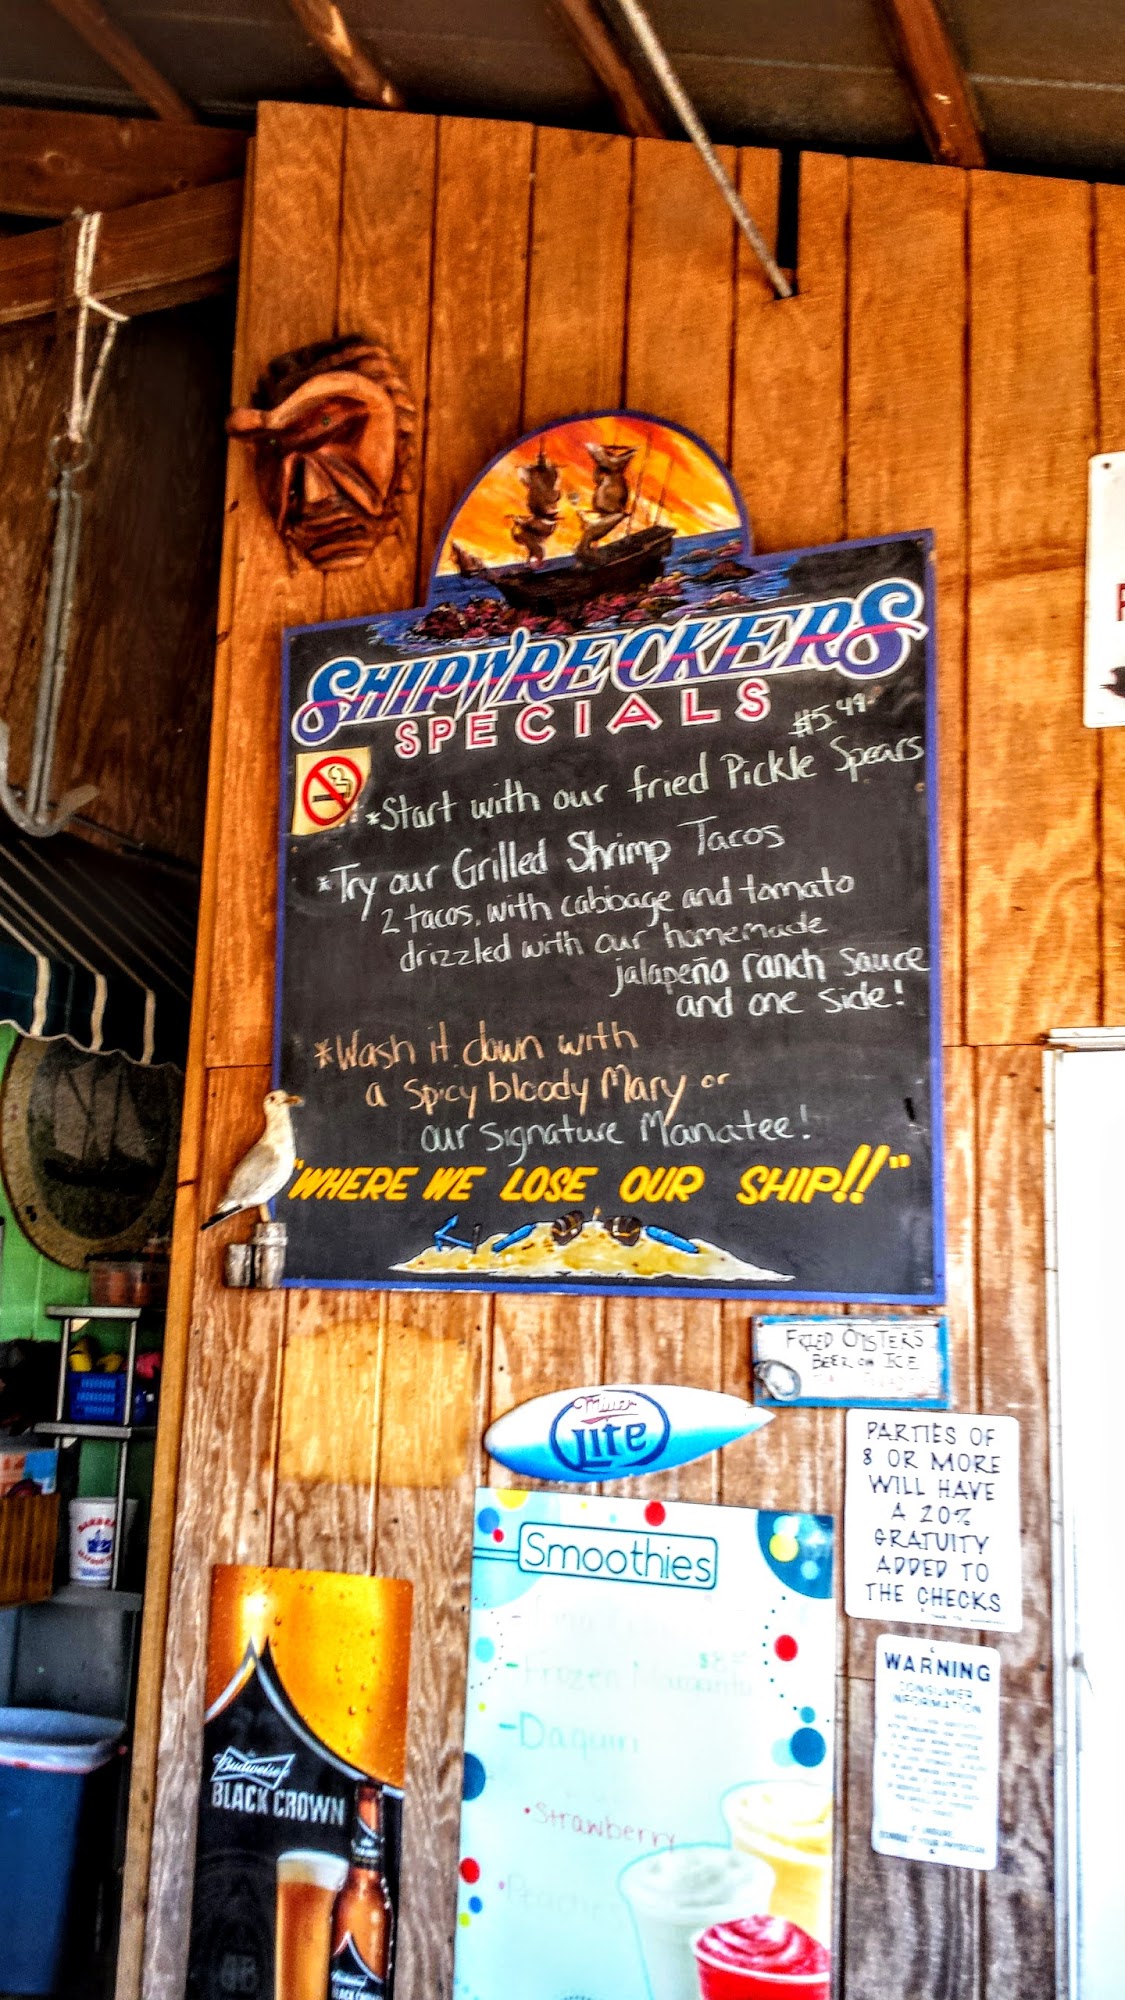 SHIPWRECKERS
SPECIALS
$5.49
*Start with our fried Pickle Spears
*Try our Grilled Shrimp Tacos
2 tacos, with cabbage and tomato
drizzled with our homemade
jalapeño ranch sauce
and one side!
*Wash it down with
a spicy bloody Mary or
our signature Manatee!
"WHERE WE LOSE OUR SHIP!!"
FRIED OYSTERS
BEER ON ICE
Miller
Lite
PARTIES OF
8 OR MORE
WILL HAVE
A 20%
GRATUITY
ADDED TO
THE CHECKS
Smoothies
-Frozen
-Daquiri
•Strawberry
WARNING
CONSUMER
INFORMATION
Budweiser
BLACK CROWN